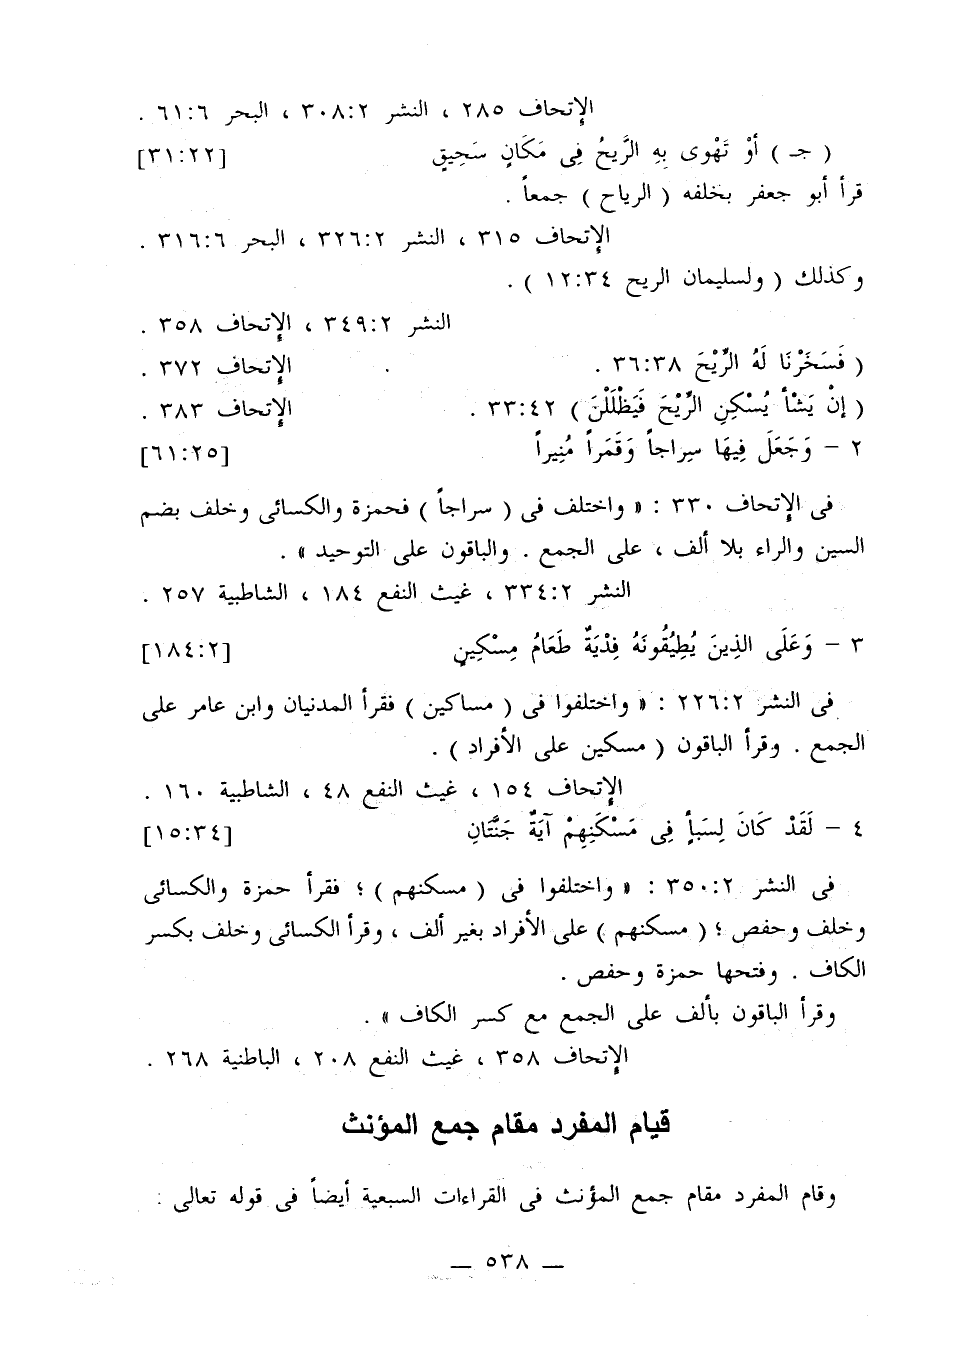 الإتحاف ٢٨٥ ، النشر ٣٠٨:٢ ، البحر ٦١:٦ .
( جـ ) أوْ تَهْوى بِهِ الرَّيحُ فِى مَكَانٍ سَحِيقٍ [٣١:٢٢]
قرأ أبو جعفر بخلفه ( الرياح ) جمعاً .
الإتحاف ٣١٥ ، النشر ٣٢٦:٢ ، البحر ٣١٦:٦ .
وكذلك ( ولسليمان الريح ١٢:٣٤ ) .
النشر ٣٤٩:٢ ، الإتحاف ٣٥٨ .
( فَسَخَرْنَا لَهُ الرِّيْحَ ٣٦:٣٨ . الإتحاف ٣٧٢ .
( إنْ يَشْأ يُسْكِنِ الرِّيْحَ فَيَظْلَلْنَ ) ٣٣:٤٢ . الإتحاف ٣٨٣ .
٢ – وَجَعَلَ فِيهَا سِراجاً وَقَمَراً مُنِيراً [٦١:٢٥]
فى الإتحاف ٣٣٠ : « واختلف فى ( سراجاً ) فحمزة والكسائى وخلف بضم
السين والراء بلا ألف ، على الجمع . والباقون على التوحيد » .
النشر ٣٣٤:٢ ، غيث النفع ١٨٤ ، الشاطبية ٢٥٧ .
٣ – وَعَلَى الذِينَ يُطِيُقُونَهُ فِدْيَةٌ طَعَامُ مِسْكِينٍ [١٨٤:٢]
فى النشر ٢٢٦:٢ : « واختلفوا فى ( مساكين ) فقرأ المدنيان وابن عامر على
الجمع . وقرأ الباقون ( مسكين على الأفراد ) .
الإتحاف ١٥٤ ، غيث النفع ٤٨ ، الشاطبية ١٦٠ .
٤ – لَقَدْ كَانَ لِسَبأٍ فِى مَسْكَنِهِمْ آيَةٌ جَنَّتَانِ [١٥:٣٤]
فى النشر ٣٥٠:٢ : « واختلفوا فى ( مسكنهم ) ؛ فقرأ حمزة والكسائى
وخلف وحفص ؛ ( مسكنهم ) على الأفراد بغير ألف ، وقرأ الكسائى وخلف بكسر
الكاف . وفتحها حمزة وحفص .
وقرأ الباقون بألف على الجمع مع كسر الكاف » .
الإتحاف ٣٥٨ ، غيث النفع ٢٠٨ ، الباطنية ٢٦٨ .
قيام المفرد مقام جمع المؤنث
وقام المفرد مقام جمع المؤنث فى القراءات السبعية أيضاً فى قوله تعالى :
— ٥٣٨ —